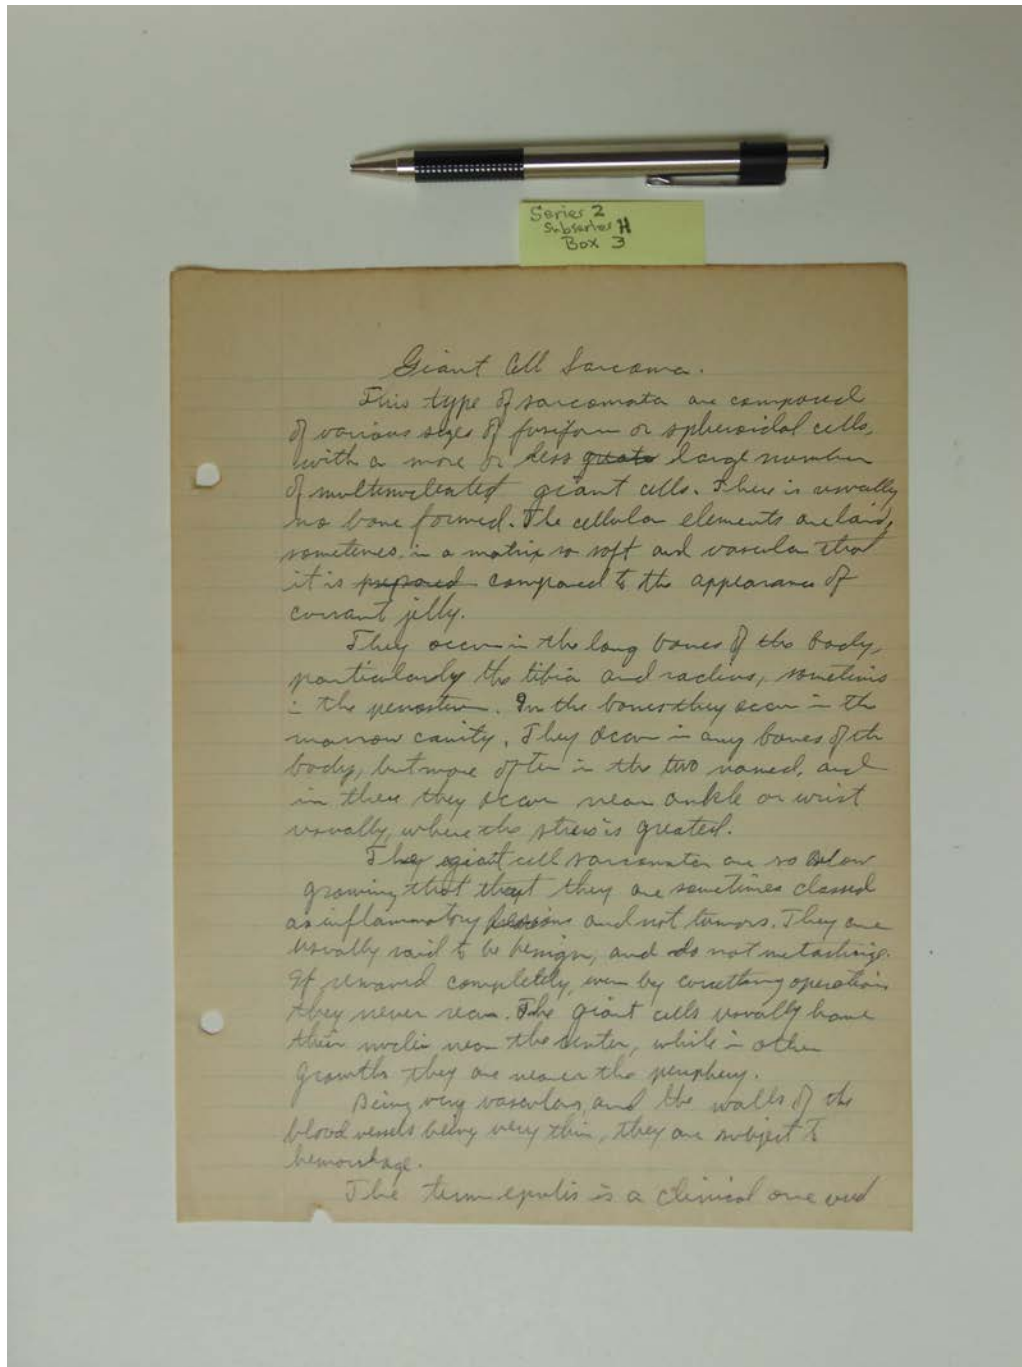 Series 2
Subseries H
Box 3
Giant Cell Sarcoma.
This type of sarcomata are composed
of various sizes of fusiform or spheroidal cells,
with a more or less greate large number
of multinucleated giant cells. There is usually
no bone formed. The cellular elements are laid,
sometimes, in a matrix so soft and vascular that
it is prepared compared to the appearance of
currant jelly.
They occur in the long bones of the body,
particularly the tibia and radius, sometimes
in the periosteum. In the bones they occur in the
marrow cavity. They occur in any bones of the
body, but more often in the two named, and
in these they occur near ankle or wrist
usually, where the stress is greatest.
They giant cell sarcomata are so slow
growing that they are sometimes classed
as inflammatory lesions and not tumors. They are
usually said to be benign, and do not metastasize.
If removed completely, even by curetting operation
they never recur. The giant cells usually have
their nuclei near the center, while in other
growths they are nearer the periphery.
Being very vascular, and the walls of the
blood vessels being very thin, they are subject to
hemorrhage.
The term epulis is a clinical one and